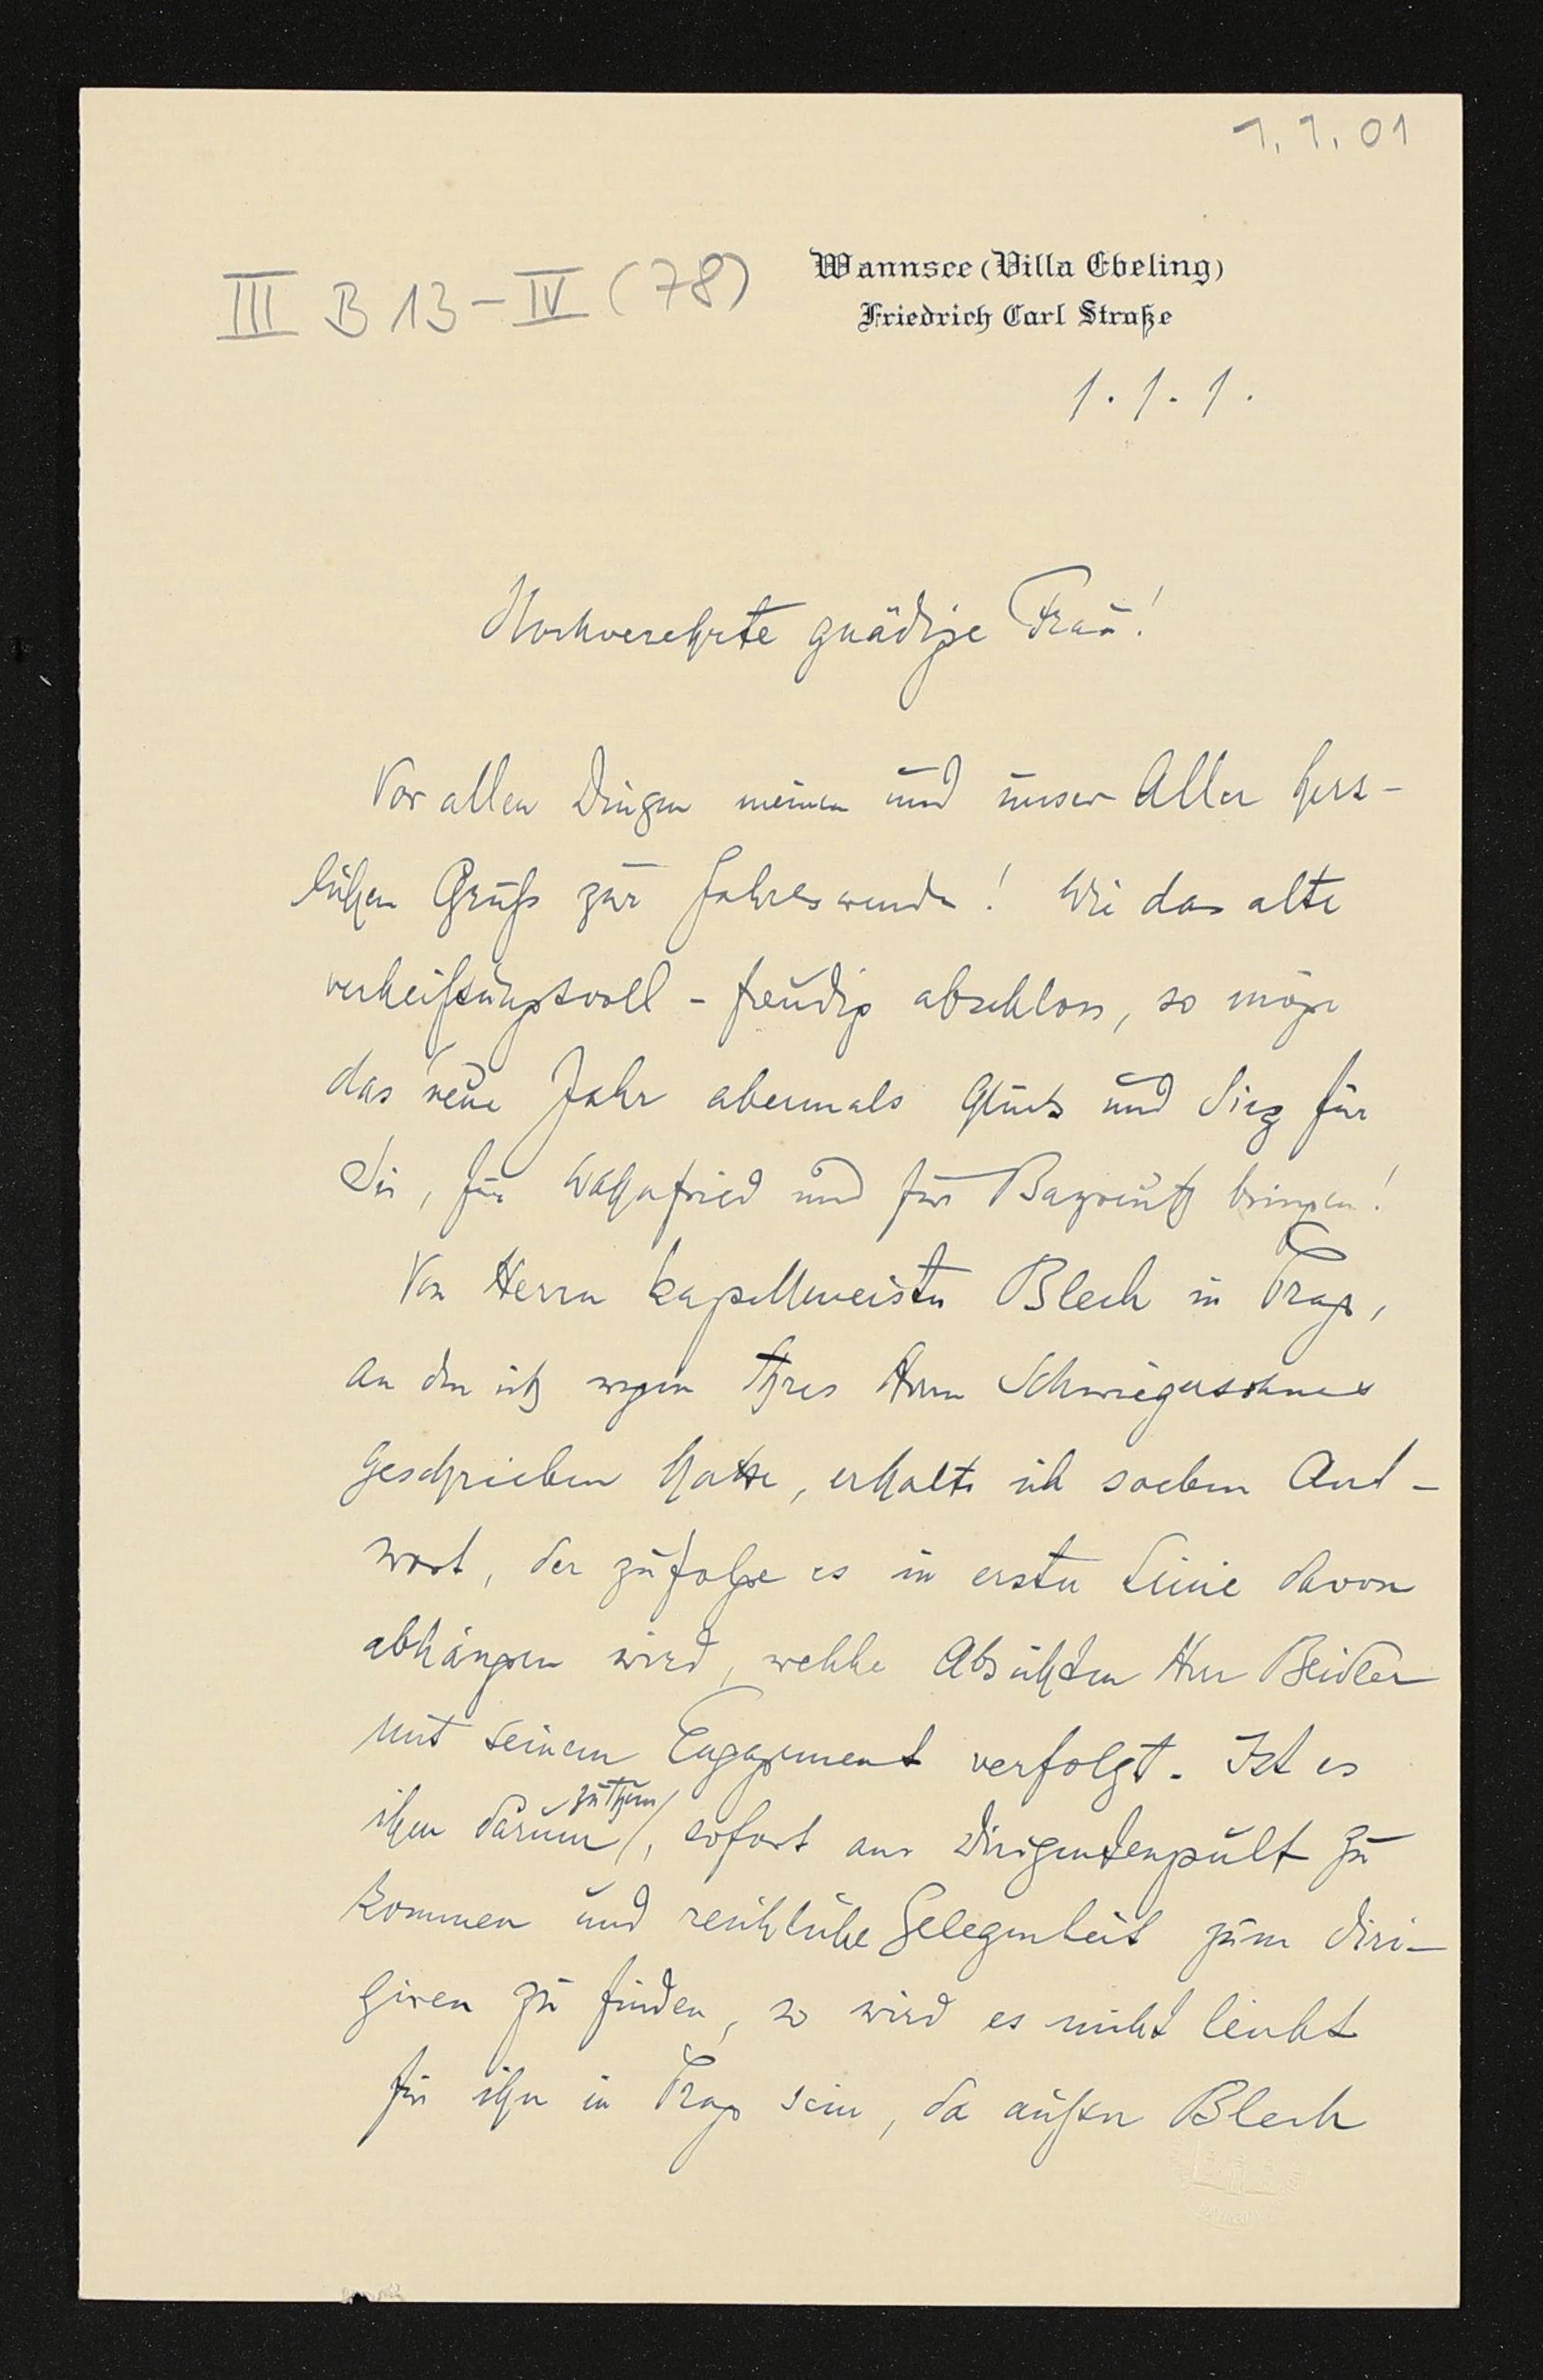 1.1.01
III B 13 - IV (78)
Wannsee (Villa Ebeling)
Friedrich Carl Straße
1.1.1.
Hochverehrte gnädige Frau!
Vor allen Dingen meinen und unser Aller herz-
lichen Gruß zur Jahreswende! Wie das alte
verheißungsvoll-freudig abschloss, so möge
das neue Jahr abermals Glück und Sieg für
Sie, für Wahnfried und für Bayreuth bringen!
Von Herrn Kapellmeister Blech in Prag,
an den ich wegen Ihres Herrn Schwiegersohnes
geschrieben hatte, erhalte ich soeben Ant-
wort, der zufolge es in erster Linie davon
abhängen wird, welche Absichten Herr Beidler
mit seinem Engagement verfolgt. Ist es
zu thun
ihm darum, sofort ans Dirigentenpult zu
kommen und reichliche Gelegenheit zum Diri-
giren zu finden, so wird es nicht leicht
für ihn in Prag sein, da außer Blech